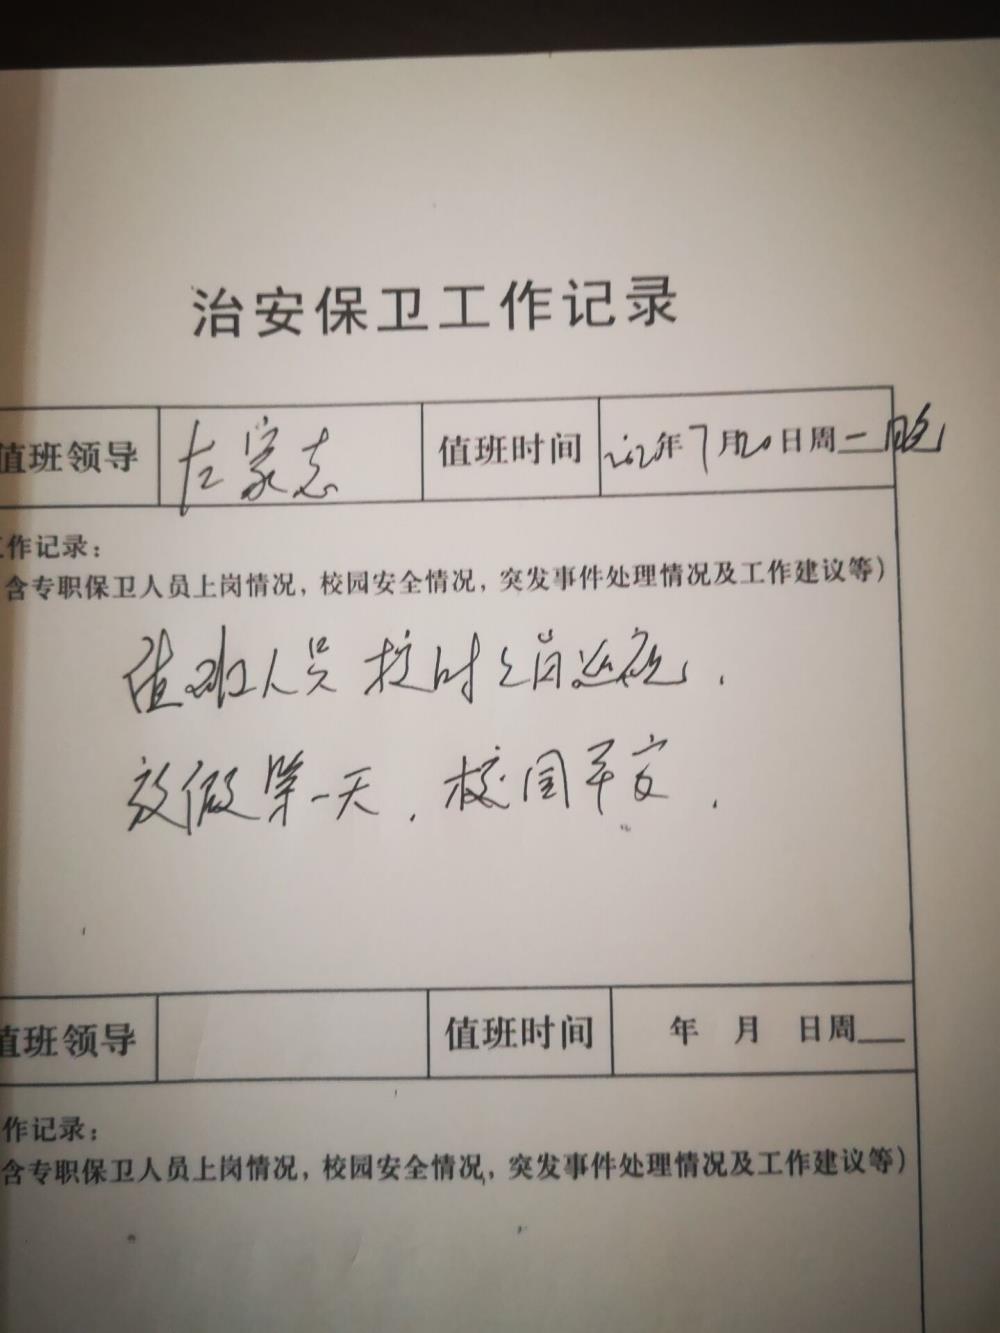 治安保卫工作记录
值班领导 左家志 值班时间 2020年7月20日周二晚
工作记录：
含专职保卫人员上岗情况，校园安全情况，突发事件处理情况及工作建议等）
值班人员按时上岗巡视．
放假第一天．校园平安．
值班领导 值班时间 年 月 日周
作记录：
含专职保卫人员上岗情况，校园安全情况，突发事件处理情况及工作建议等）